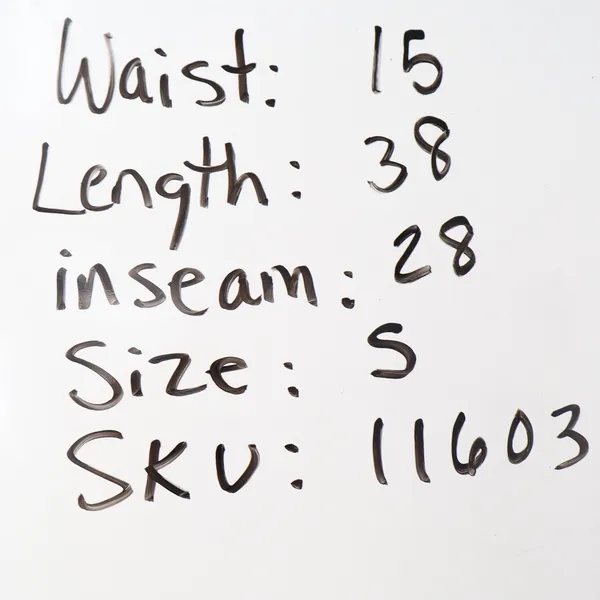 Waist: 15
Length: 38
inseam: 28
Size: S
SKU: 11603